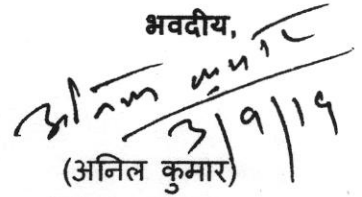 भवदीय,
अनिल कुमार
3/9/19
(अनिल कुमार)